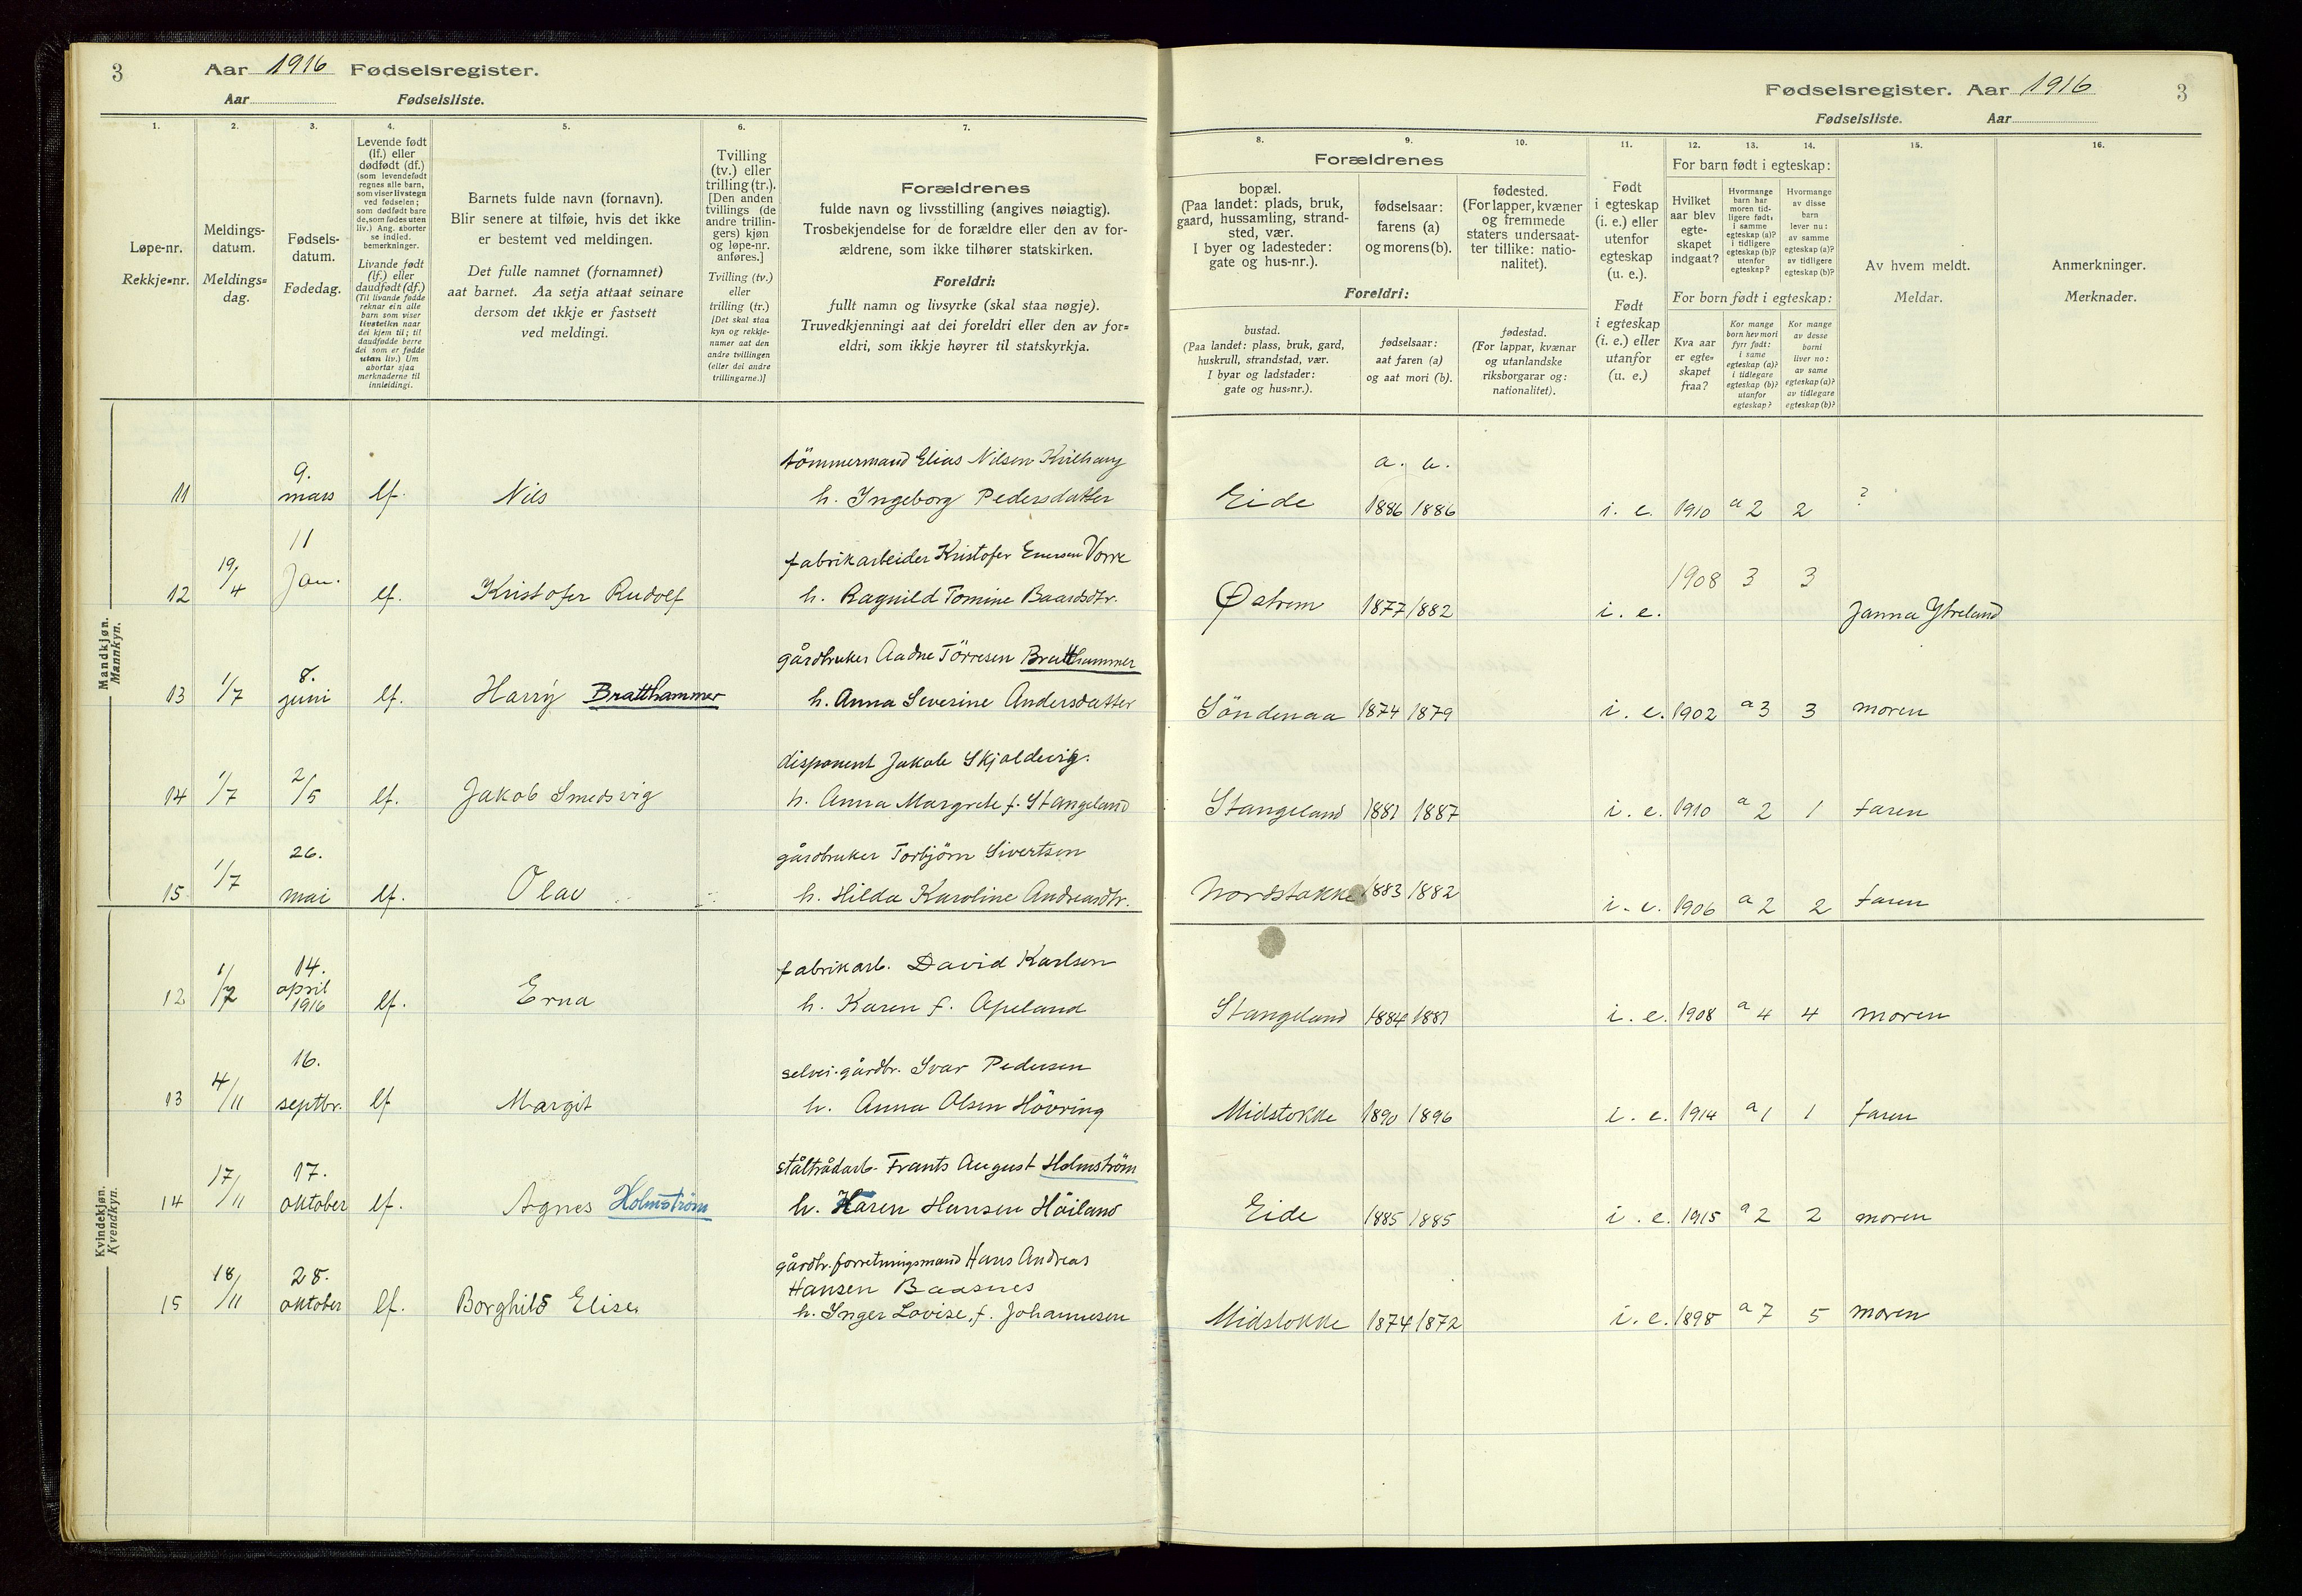 3 Aar 1916 Fødselsregister.
Aar Fødselsliste.
1. 2. 3. 4. 5. 6. 7.
Løpe-nr.
Rekkje-nr.
Meldings-
datum.
Meldings-
dag.
Fødsels-
datum.
Fødedag.
Levende født
(lf.) eller
dødfødt (df.)
(som levendefødt
regnes alle barn,
som viser livstegn
ved fødselen;
som dødfødt bare
de, som fødes uten
liv.) Ang. aborter
se indled.
bemerkninger.
Livande født
(lf.) eller
daudfødt (df.)
(Til livande fødde
reknar ein alle
barn som viser
livsteikn naar
dei kjem til; til
daudfødde berre
dei som er fødde
utan liv.) Um
abortar sjaa
merknaderne til
innleidingi.
Barnets fulde navn (fornavn).
Blir senere at tilføie, hvis det ikke
er bestemt ved meldingen.
Det fulle namnet (fornamnet)
aat barnet. Aa setja attaat seinare
dersom det ikkje er fastsett
ved meldingi.
Tvilling
(tv.) eller
trilling (tr.).
[Den anden
tvillings (de
andre trillin-
gers) kjøn
og løpe-nr.
anføres.]
Tvilling (tv.)
eller
trilling (tr.)
[Det skal staa
kyn og rekkje-
numer aat den
andre tvillingen
(eller dei andre
trillingarne.)]
Forældrenes
fulde navn og livsstilling (angives nøiagtig).
Trosbekjendelse for de forældre eller den av for-
ældrene, som ikke tilhører statskirken.
Foreldri:
fullt namn og livsyrke (skal staa nøgje).
Truvedkjenningi aat dei foreldri eller den av for-
eldri, som ikkje høyrer til statskyrkja.
Mandkjøn.
Mannkyn.
11 9. mars lf. Nils
tömmermand Elias Nilsen Kvilhaug
h. Ingeborg Pedersdatter
12 19/4 11 Jan. lf. Kristofer Rudolf
fabrikarbeider Kristofer Enersen Vorre
h. Ragnild Tomine Baardsdtr.
13 1/7 8. juni lf. Harry Bratthammer
gårdbruker Aadne Törresen Bratthammer
h. Anna Severine Andersdatter
14 1/7 2/5 lf. Jakob Smedsvig
disponent Jakob Skjoldevig.
h. Anna Margrete f. Stangeland
15 1/7 26. mai lf. Olav
gårdbruker Torbjörn Sivertsen
h. Hilda Karoline Andreasdtr.
Kvindekjøn.
Kvendkyn.
12 1/7 14. april 1916 lf. Erna
fabrikarb. David Karlsen
h. Karen f. Apeland
13 4/11 16. septbr. lf Margit
selvei.gårdbr. Ivar Pedersen
h. Anna Olsen Hövring
14 17/11 17. oktober lf. Agnes Holmström
ståltrådarb. Frants August Holmström
h. Karen Hansen Höiland
15 18/11 28. oktober lf. Borghild Elise.
gårdbr. forretningsmand Hans Andreas
Hansen Baasnes
h. Inger Lovise, f. Johannesen
Fødselsregister. Aar 1916 3
Fødselsliste. Aar
8. 9. 10. 11. 12. 13. 14. 15. 16.
Forældrenes
bopæl.
(Paa landet: plads, bruk,
gaard, hussamling, strand-
sted, vær.
I byer og ladesteder:
gate og hus-nr.).
fødselsaar:
farens (a)
og morens (b).
fødested.
(For lapper, kvæner
og fremmede
staters undersaat-
ter tillike: natio-
nalitet).
Foreldri:
bustad.
(Paa landet: plass, bruk, gard,
huskrull, strandstad, vær.
I byar og ladstader:
gate og hus-nr.).
fødselsaar:
aat faren (a)
og aat mori (b).
fødestad.
(For lappar, kvænar
og utanlandske
riksborgarar og:
nationalitet).
Født
i egteskap
(i. e.) eller
utenfor
egteskap
(u. e.).
Født
i egteskap
(i. e.) eller
utanfor
(u. e.)
For barn født i egteskap:
Hvilket
aar blev
egte-
skapet
indgaat?
Hvormange
barn har
moren tid-
ligere født:
i samme
egteskap (a)?
i tidligere
egteskap (b)?
utenfor
egteskap?
Hvormange
av disse
barn
lever nu:
av samme
egteskap (a)?
av tidligere
egteskap (b)?
For born født i egteskap:
Kva aar
er egte-
skapet
fraa?
Kor mange
born hev mori
fyrr født:
i same
egteskap (a)?
i tidlegare
egteskap (b)?
utanfor
egteskap?
Kor mange
av desse
borni
liver no:
av same
egteskap (a)?
av tidlegare
egteskap (b)?
Av hvem meldt.
Meldar.
Anmerkninger.
Merknader.
a. b.
Eide 1886 1886 i. e. 1910 a 2 2 ?
Østrem 1877 1882 i. e. 1908 3 3 Janna Ytreland
Söndenaa 1874 1879 i. e. 1902 a 3 3 moren
Stangeland 1881 1887 i. e. 1910 a 2 1 faren
Nordstokke 1883 1882 i. e. 1906 a 2 2 faren
Stangeland 1884 1881 i. e. 1908 a 4 4 moren
Midstokke 1890 1896 i. e. 1914 a 1 1 faren
Eide 1885 1885 i. e. 1915 a 2 2 moren
Midstokke 1874 1872 i. e. 1898 a 7 5 moren